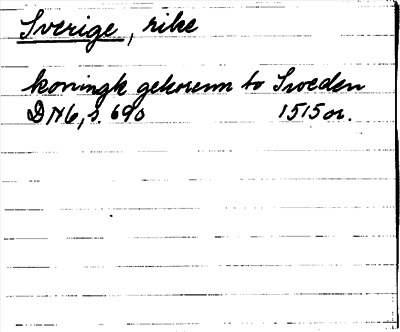 Sverige, rike
koningk gekorenn to Sweden
DN 6, s. 690 1515 or.